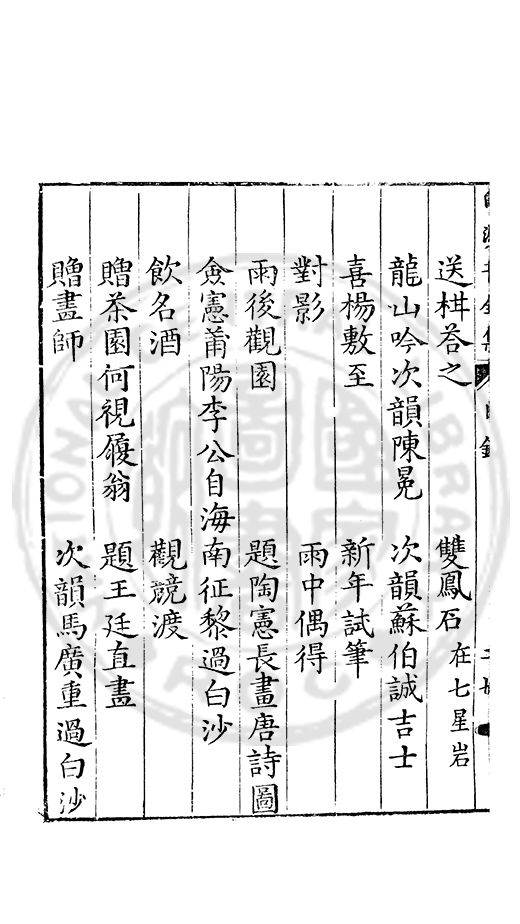 送柑荅之　雙鳳石在七星岩
龍山吟次韻陳冕　次韻蘇伯誠吉士
喜楊敷至　新年試筆
對影　雨中偶得
雨後觀園　題陶憲長畫唐詩圖
僉憲莆陽李公自海南征黎過白沙
飲名酒　觀競渡
贈茶園何視履翁　題王廷直畫
贈畫師　次韻馬廣重過白沙